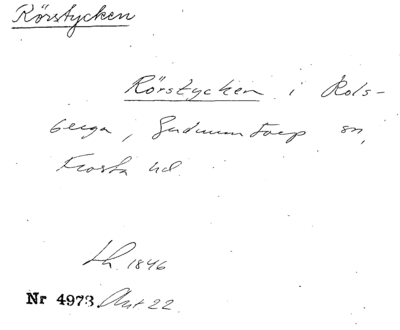 Rörstycken
Rörstycken i Rols-
berga, Gudmuntorp sn,
Frosta hd.
Lh. 1846
Nr 4973 Akt 22.